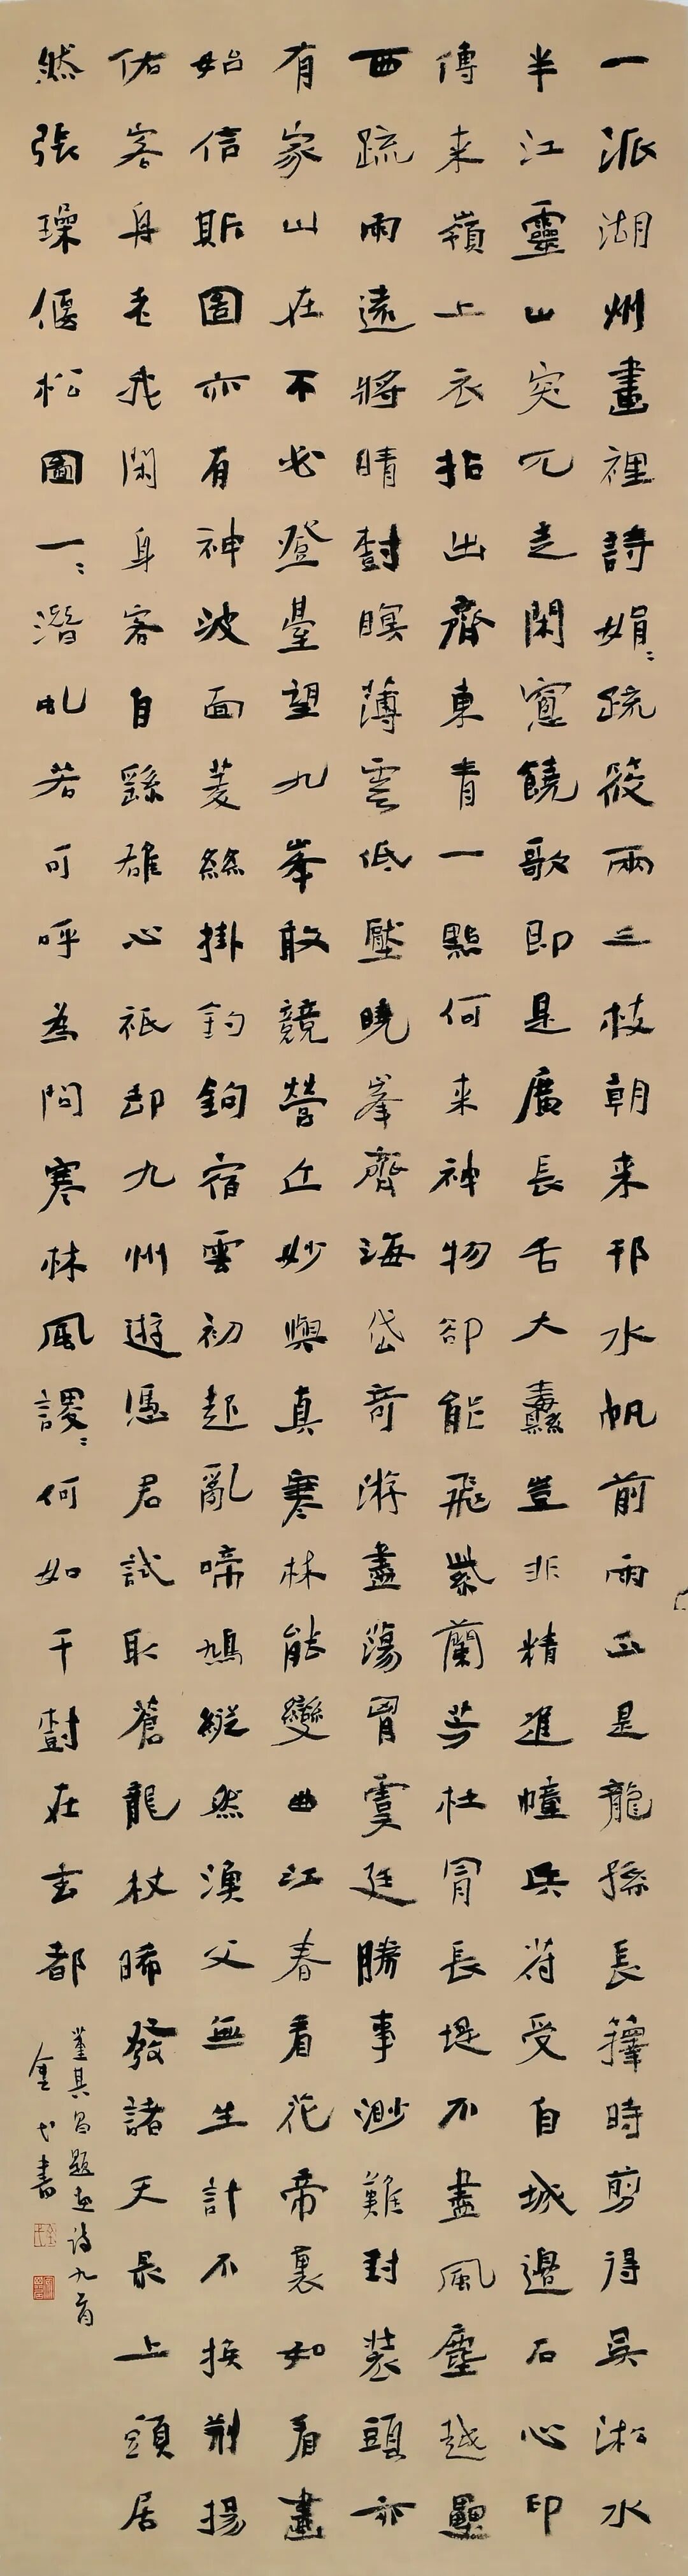 一派湖州畫裡詩娟〻疏筱兩三枝朝来邗水帆前雨正是龍孫長籜時剪得吳淞水
半江靈山突兀走閑窗饒歌即是廣長舌大纛豈非精進幢兵符受自城邊石心印
傳来嶺上衣拈出齊東青一點何来神物卻能飛紫蘭芳杜冒長堤不盡風塵越壘
西疏雨遠將晴樹暝薄雲低壓曉峯齊海岱奇游盡蕩胷虞廷勝事渺難對裝頭亦
有家山在不必登臺望九峯敢競營丘妙與真寒林能變曲江春看花帝裏如看畫
始信斯圖亦有神波面菱絲掛釣鉤宿雲初起亂啼鳩縱然漁父無生計不換荊揚
估客舟老我閑身客自繇雄心祗却九州遊憑君試取蒼龍杖晞發諸天最上頭居
然張璪偃松圖一〻潛虬若可呼為問寒林風謖〻何如千樹在玄都
董其昌題畫詩九首
金弋書